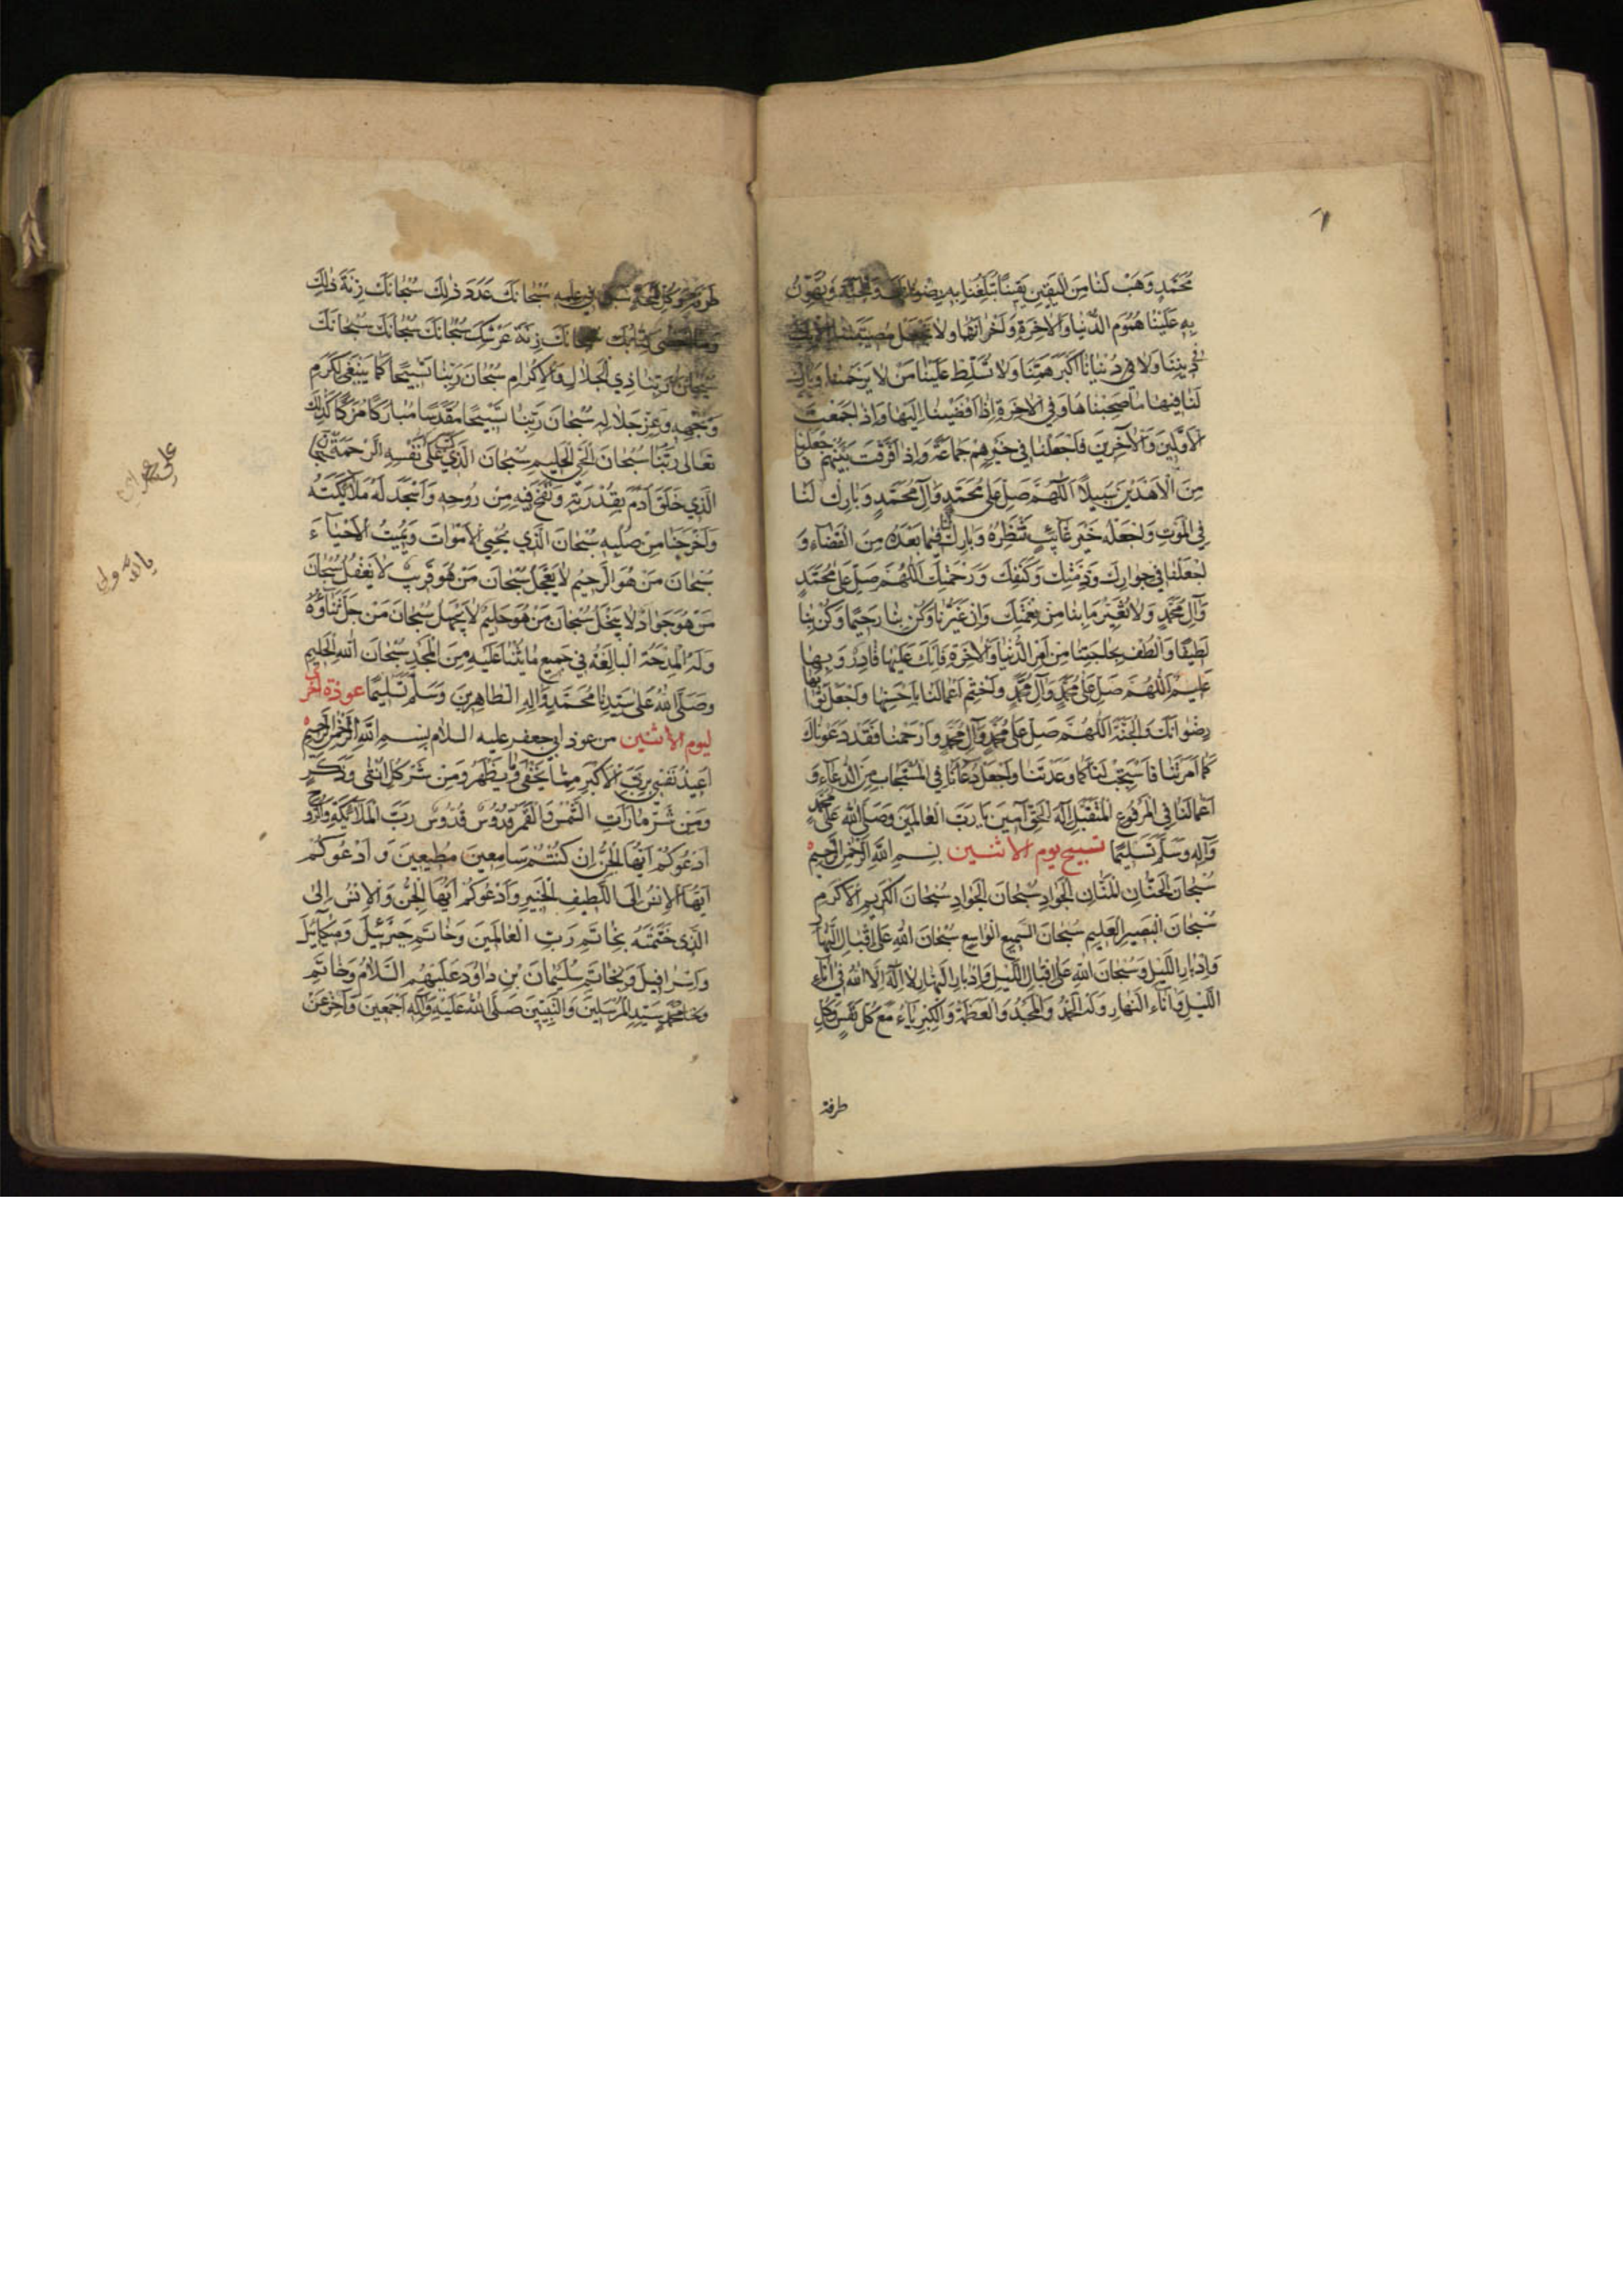 محمد وهب لنا من اليقين يقينا تبلغنا به رضوانك والجنة وتهون
به علينا هموم الدنيا والآخرة واحزانهما ولا تجعل مصيبتنا
في ديننا ولا في دنيانا اكبر همنا ولا تسلط علينا من لا يرحمنا وبارك
لنا فيها ما صحبناها وفي الآخرة اذا افضينا اليها واذا جمعت
الاولين والآخرين فاجعلنا في خيرهم جماعة واذا فرقت بينهم فاجعلنا
من الاهدين سبيلا اللهم صل على محمد وآل محمد وبارك لنا
في الموت واجعله خير غائب ننتظره وبارك لنا فيما بعده من القضاء و
اجعلنا في جوارك وذمتك وكنفك ورحمتك اللهم صل على محمد
وآل محمد ولا تغير ما بنا من نعمتك وان غيرنا وكن بنا رحيما وكن بنا
لطيفا والطف بحاجتنا من امر الدنيا والآخرة فانك عليها قادر وبها
عليم اللهم صل على محمد وآل محمد واختم اعمالنا باحسنها واجعل ثوابها
رضوانك والجنة اللهم صل على محمد وآل محمد وارحمنا فقد دعوناك
كما امرتنا فاستجب لنا كما وعدتنا واجعل دعاءنا في المستجاب من الدعاء و
اعمالنا في المرفوع المتقبل اله الحق آمين يا رب العالمين وصلى الله على محمد
وآله وسلم تسليما تسبيح يوم الاثنين بسم الله الرحمن الرحيم
سبحان الحنان المنان الجواد سبحان الجواد سبحان الكريم الاكرم
سبحان البصير العليم سبحان السميع الواسع سبحان الله على اقبال النهار
وادبار الليل وسبحان الله على اقبال الليل وادبار النهار لا اله الا الله في اناء
الليل واناء النهار وله الحمد والمجد والعظمة والكبرياء مع كل نفس وكل
طرفة
وكل لمحة سبق في علمه سبحانك عدد ذلك سبحانك زنة ذلك
وما احصى كتابك سبحانك زنة عرشك سبحانك سبحانك سبحانك
سبحان ربنا ذي الجلال والاكرام سبحان ربنا تسبيحا كما ينبغي لكرم
وجهه وعز جلاله سبحان ربنا تسبيحا مقدسا مباركا مزكا كذلك
تعالى ربنا سبحان الحي الحليم سبحان الذي كتب على نفسه الرحمة سبحان
الذي خلق آدم بقدرته ونفخ فيه من روحه واسجد له ملائكته
واخرجنا من صلبه سبحان الذي يحيي الاموات ويميت الاحياء
سبحان من هو الرحيم لا يعجل سبحان من هو قريب لا يغفل سبحان
من هو جواد لا يبخل سبحان من هو حليم لا يجهل سبحان من جل ثناؤه
وله المدحة البالغة في جميع ما يثنا عليه من المجد سبحان الله الحليم
وصلى الله على سيدنا محمد وآله الطاهرين وسلم تسليما عوذة اخرى
ليوم الاثنين من عوذ ابي جعفر عليه السلام بسم الله الرحمن الرحيم
اعيذ نفسي بربي الاكبر مما يخفى وما يظهر ومن شر كل انثى وذكر
ومن شر ما رات الشمس والقمر قدوس قدوس رب الملائكة والروح
ادعوكم ايها الجن ان كنتم سامعين مطيعين وادعوكم
ايها الانس الى اللطيف الخبير وادعوكم ايها الجن والانس الى
الذي ختمته بخاتم رب العالمين وخاتم جبرئيل وميكائيل
واسرافيل وبخاتم سليمان بن داود عليهم السلام وخاتم
محمد سيد المرسلين والنبيين صلى الله عليه وآله اجمعين واخر عن